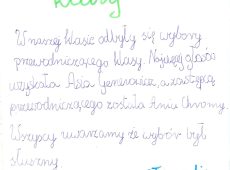 klasy
W naszej klasie odbyły się wybory
przewodniczącego klasy. Najwięcej głosów
uzyskała Asia Generowicz, a zastępcą
przewodniczącego została Ania Chromy.
Wszyscy uważamy że wybór był
słuszny.